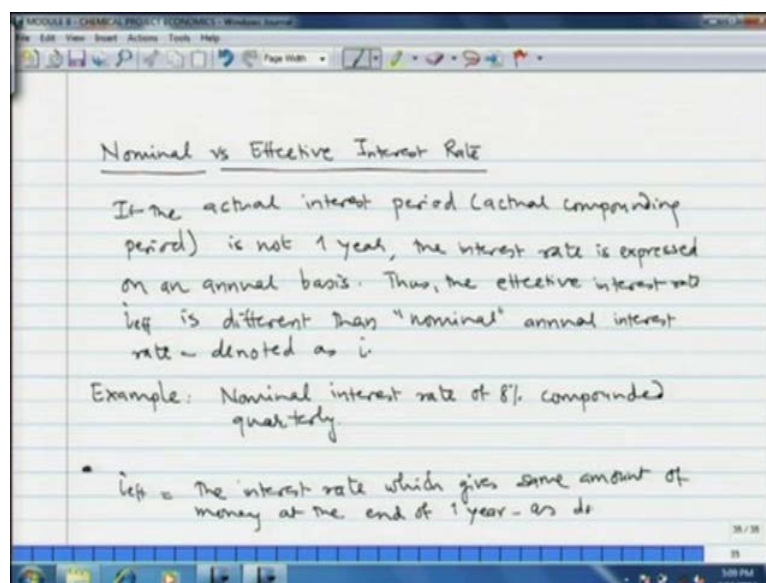 MODULE 8 - CHEMICAL PROJECT ECONOMICS - Windows Journal
File Edit View Insert Actions Tools Help
Page Width
Nominal vs Effective Interest Rate
If the actual interest period (actual compounding
period) is not 1 year, the interest rate is expressed
on an annual basis. Thus, the effective interest rate
ieff is different than "nominal" annual interest
rate - denoted as i.
Example: Nominal interest rate of 8% compounded
quarterly.
ieff = The interest rate which gives same amount of
money at the end of 1 year - as do
35
5:09 PM